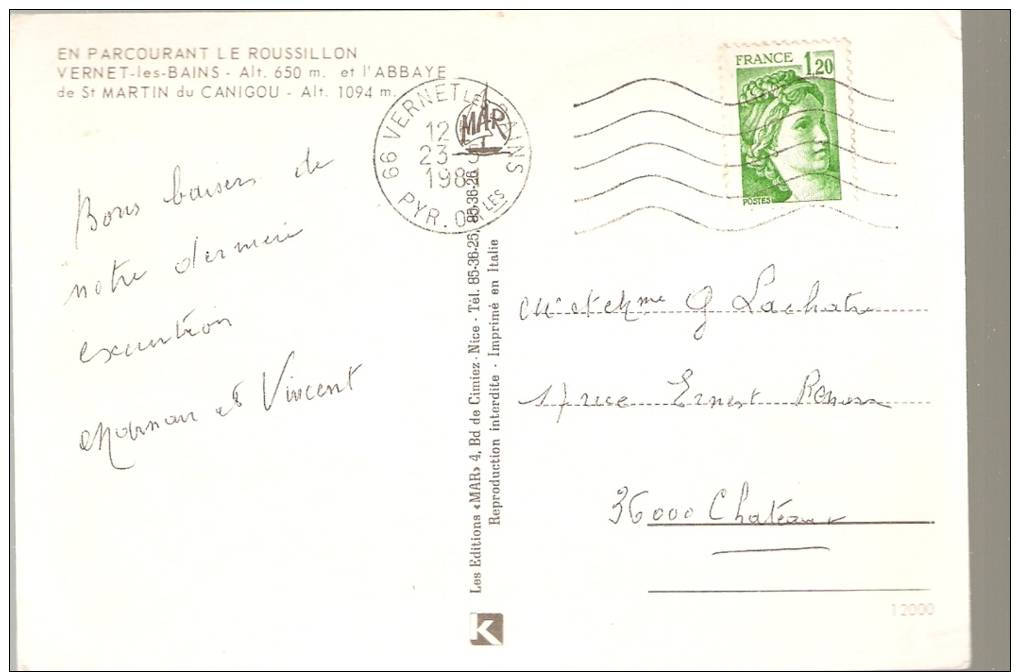 EN PARCOURANT LE ROUSSILLON
VERNET-les-BAINS - Alt. 650 m. et l'ABBAYE
de St MARTIN du CANIGOU - Alt. 1094 m.
66 VERNET LES BAINS
12
23
PYR. OR LES
MAR
FRANCE 1,20
POSTES
Bons baisers de
notre dernière
excurtion
Maman et Vincent
Mr et Mme G Lachatre
17 rue Ernest Renan
36000 Chateaux
Les Editions «MAR» 4, Bd de Cimiez - Nice - Tél. 85-36-25, 85-36-26
Reproduction interdite - Imprimé en Italie
K
12000